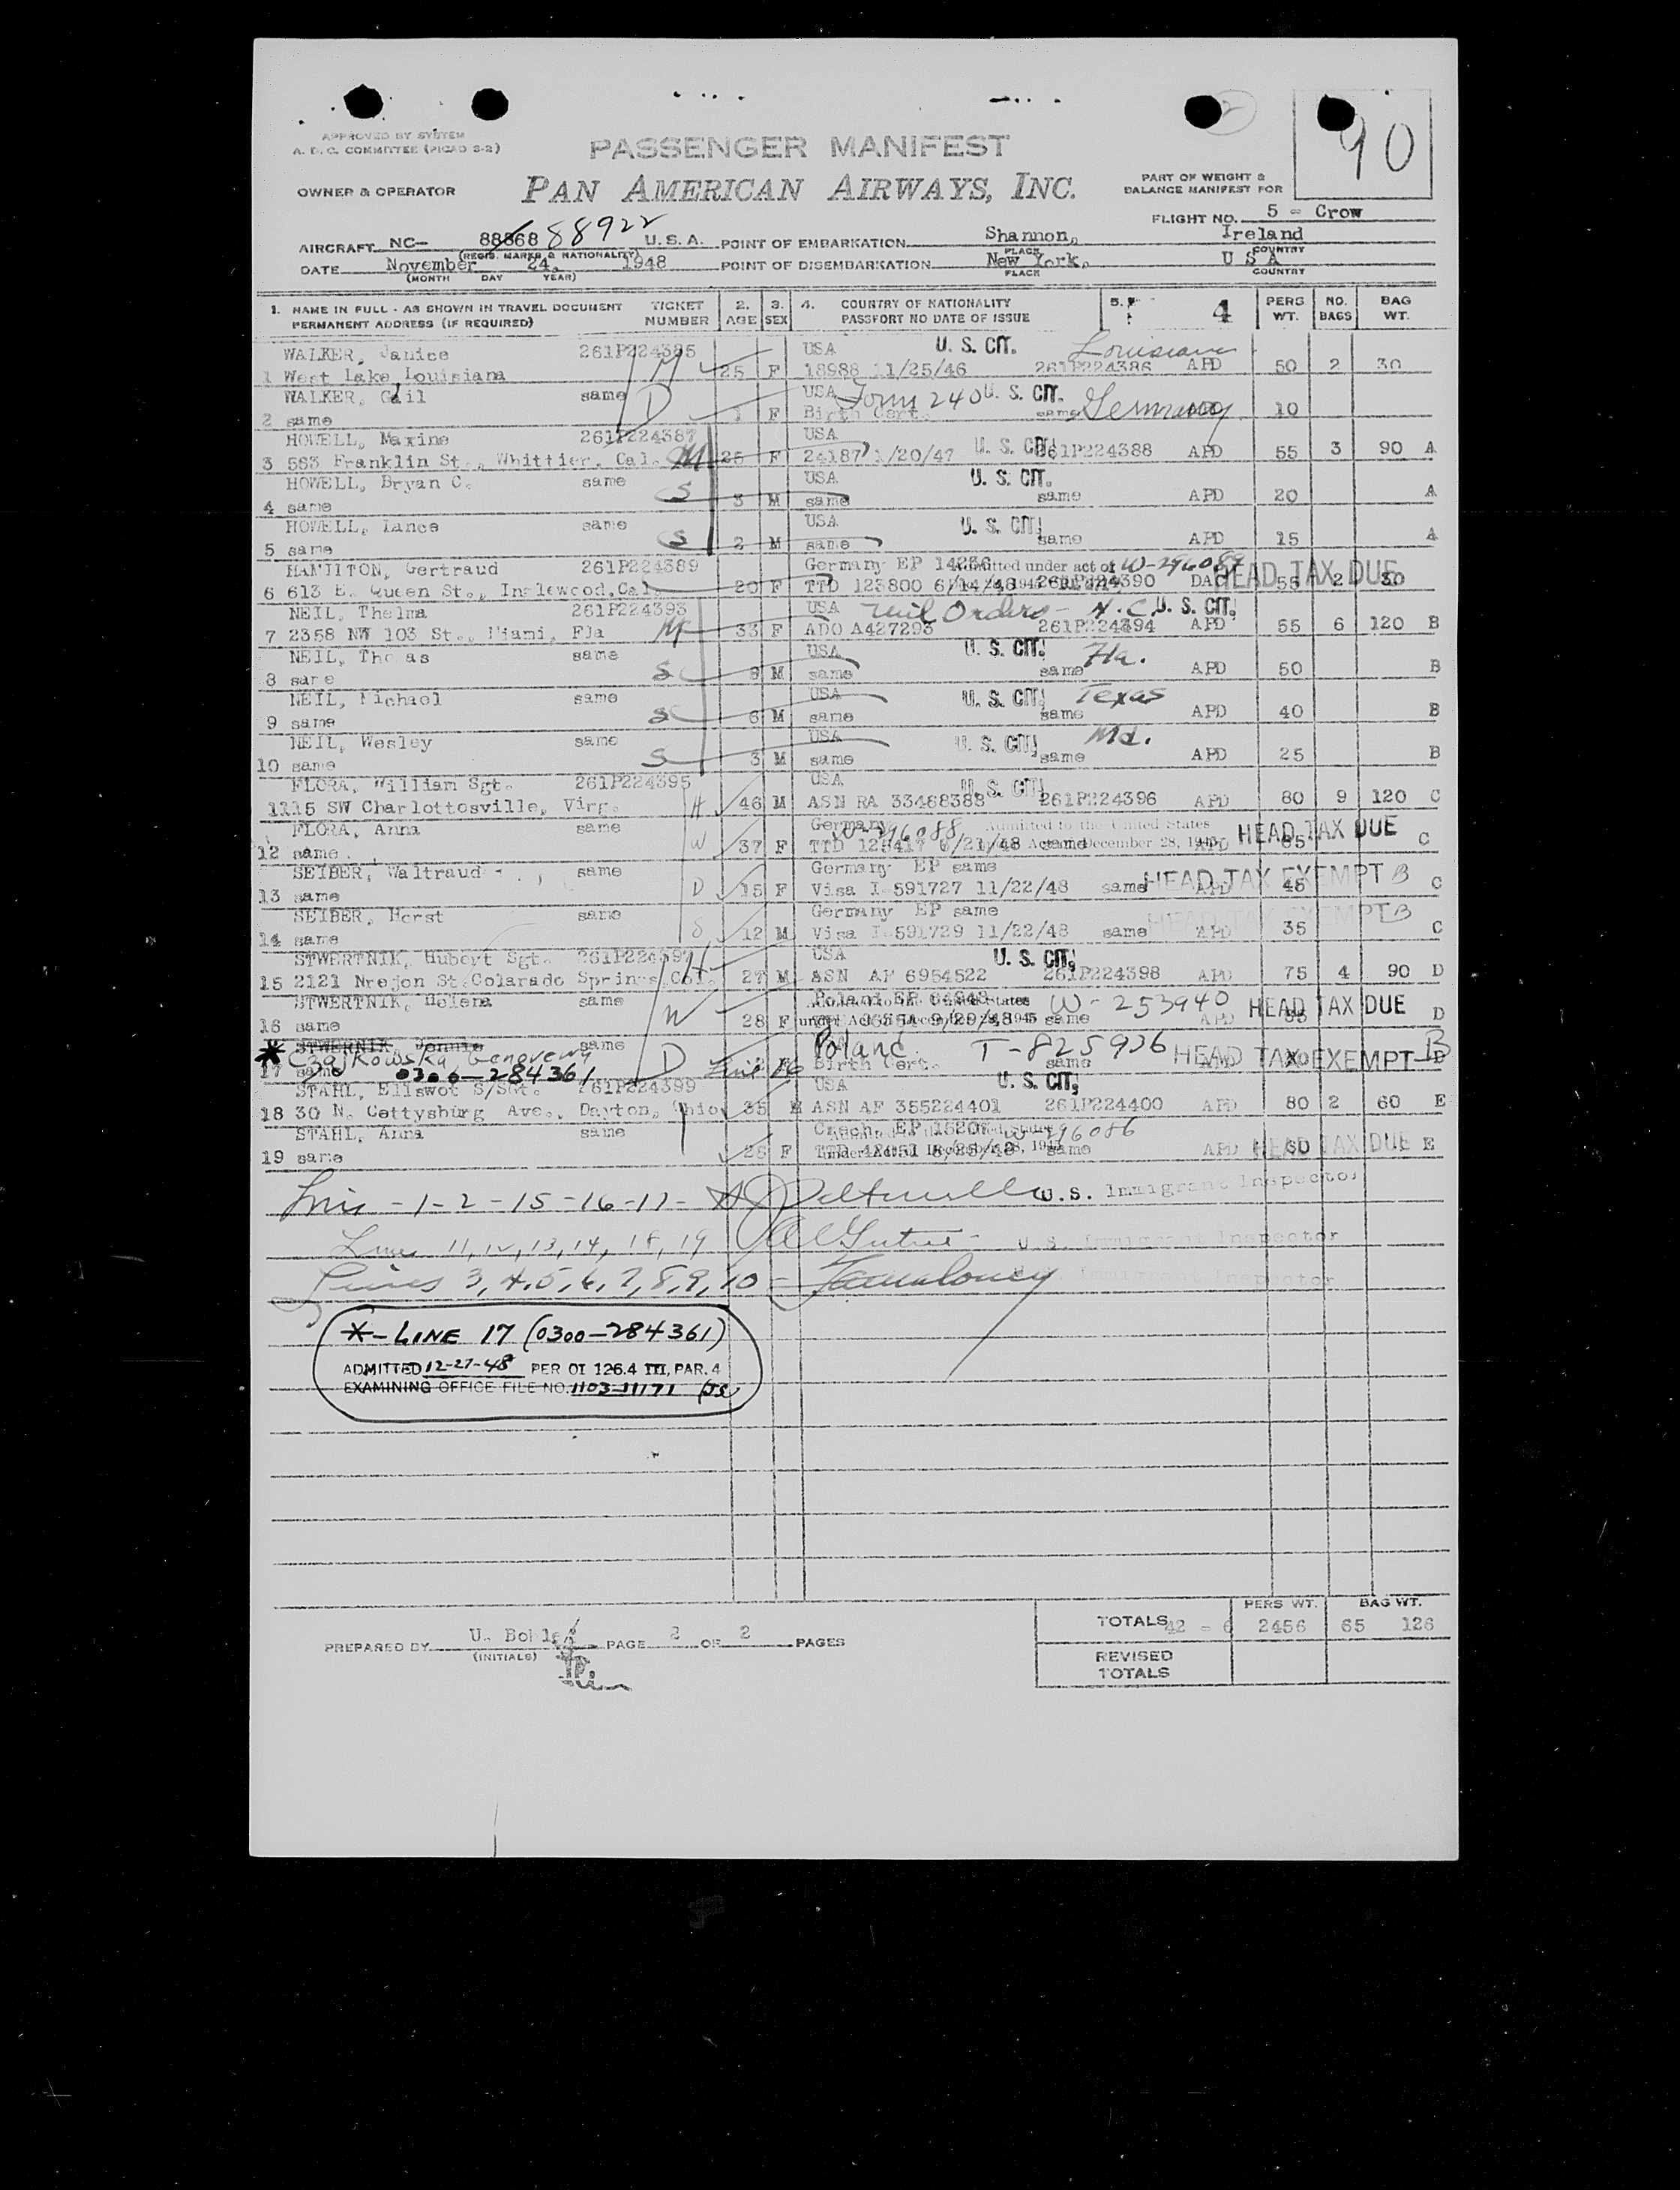 90
APPROVED BY SYSTEM
A. D. C. COMMITTEE (PICAO S-2)
PASSENGER MANIFEST
OWNER & OPERATOR PAN AMERICAN AIRWAYS, INC.
PART OF WEIGHT &
BALANCE MANIFEST FOR
FLIGHT NO. 5 - Crow
AIRCRAFT NC- 88868 88922 U.S.A. POINT OF EMBARKATION Shannon, Ireland
(REGIS. MARKS & NATIONALITY) PLACE COUNTRY
DATE November 24, 1948 POINT OF DISEMBARKATION New York, U S A
(MONTH DAY YEAR) PLACE COUNTRY
1. NAME IN FULL - AS SHOWN IN TRAVEL DOCUMENT TICKET 2. 3. 4. COUNTRY OF NATIONALITY 5. 4 PERS NO. BAG
PERMANENT ADDRESS (IF REQUIRED) NUMBER AGE SEX PASSPORT NO DATE OF ISSUE WT. BAGS WT.
WALKER, Janice 261P224385 USA U. S. CIT. Louisiana
1 West Lake, Louisiana M 25 F 18988 11/25/46 261P224386 APD 50 2 30
WALKER, Gail same D USA Form 240 U. S. CIT.
2 same 1 F Birth Cert. same Germany 10
HOWELL, Maxine 261P224387 USA
3 583 Franklin St., Whittier, Cal. M 25 F 24187 1/20/47 U. S. CIT. 261P224388 APD 55 3 90 A
HOWELL, Bryan C. same USA U. S. CIT.
4 same S 3 M same same APD 20 A
HOWELL, Lance same USA U. S. CIT.
5 same S 2 M same same APD 15 A
HAMILTON, Gertraud 261P224389 Germany EP 14236 Admitted under act of HEAD TAX DUE
6 613 E. Queen St., Inglewood, Cal. 20 F TTD 123800 6/14/48 261P224390 55 2 30
NEIL, Thelma 261P224393 USA Mil Orders - N.C. U. S. CIT.
7 2358 NW 103 St., Miami, Fla M 33 F ADO A427293 261P224394 APD 55 6 120 B
NEIL, Thomas same USA U. S. CIT. Fla.
8 same S M same same APD 50 B
NEIL, Michael same USA U. S. CIT. Texas
9 same S 6 M same same APD 40 B
NEIL, Wesley same USA U. S. CIT. Md.
10 same S 3 M same same APD 25 B
FLORA, William Sgt. 261P224395 USA U. S. CIT.
11 15 SW Charlottosville, Virg. H 46 M ASN RA 33468388 261P224396 APD 80 9 120 C
FLORA, Anna same Germany W-296088 Admitted to the United States HEAD TAX DUE
12 same W 37 F TTD 6/21/48 Act December 28, 1945 C
SEIBER, Waltraud same Germany EP same HEAD TAX EXEMPT B
13 same D 15 F Visa I-591727 11/22/48 same APD 45 C
SEIBER, Horst same Germany EP same HEAD TAX EXEMPT B
14 same S 12 M Visa I-591729 11/22/48 same APD 35 C
STWERTNIK, Hubert Sgt. 261P224397 H USA U. S. CIT.
15 2121 Nrejon St. Colarado Springs Col. 27 M ASN AF 6954522 261P224398 APD 75 4 90 D
STWERTNIK, Helena same Poland EP United States W-253940 HEAD TAX DUE
16 same W 28 F under Act December 9/29/48 1945 same APD D
* STWERNIK, Jennie same Poland T-825926 HEAD TAX EXEMPT B
Czajkowska Genovewy
17 same 0300-284361 D Birth Cert. same
STAHL, Ellswot S/Sgt. 261P224399 USA U. S. CIT.
18 30 N. Gettysburg Ave., Dayton, Ohio 35 M ASN AF 355224401 261P224400 APD 80 2 60 E
STAHL, Anna same Czech. EP W-296086
19 same 28 F same APD 60 HEAD TAX DUE E
Lines - 1 - 2 - 15 - 16 - 17 - U.S. Immigrant Inspector
Lines 11, 12, 13, 14, 18, 19 U.S. Immigrant Inspector
Lines 3, 4, 5, 6, 7, 8, 9, 10 - Immigrant Inspector
*-LINE 17 (0300-284361)
ADMITTED 12-27-48 PER OI 126.4 III, PAR. 4
EXAMINING OFFICE FILE NO. 1103-11171
PERS WT. BAG WT.
TOTALS 42 - 6 2456 65 126
PREPARED BY PAGE 2 OF 2 PAGES
(INITIALS)
REVISED
TOTALS